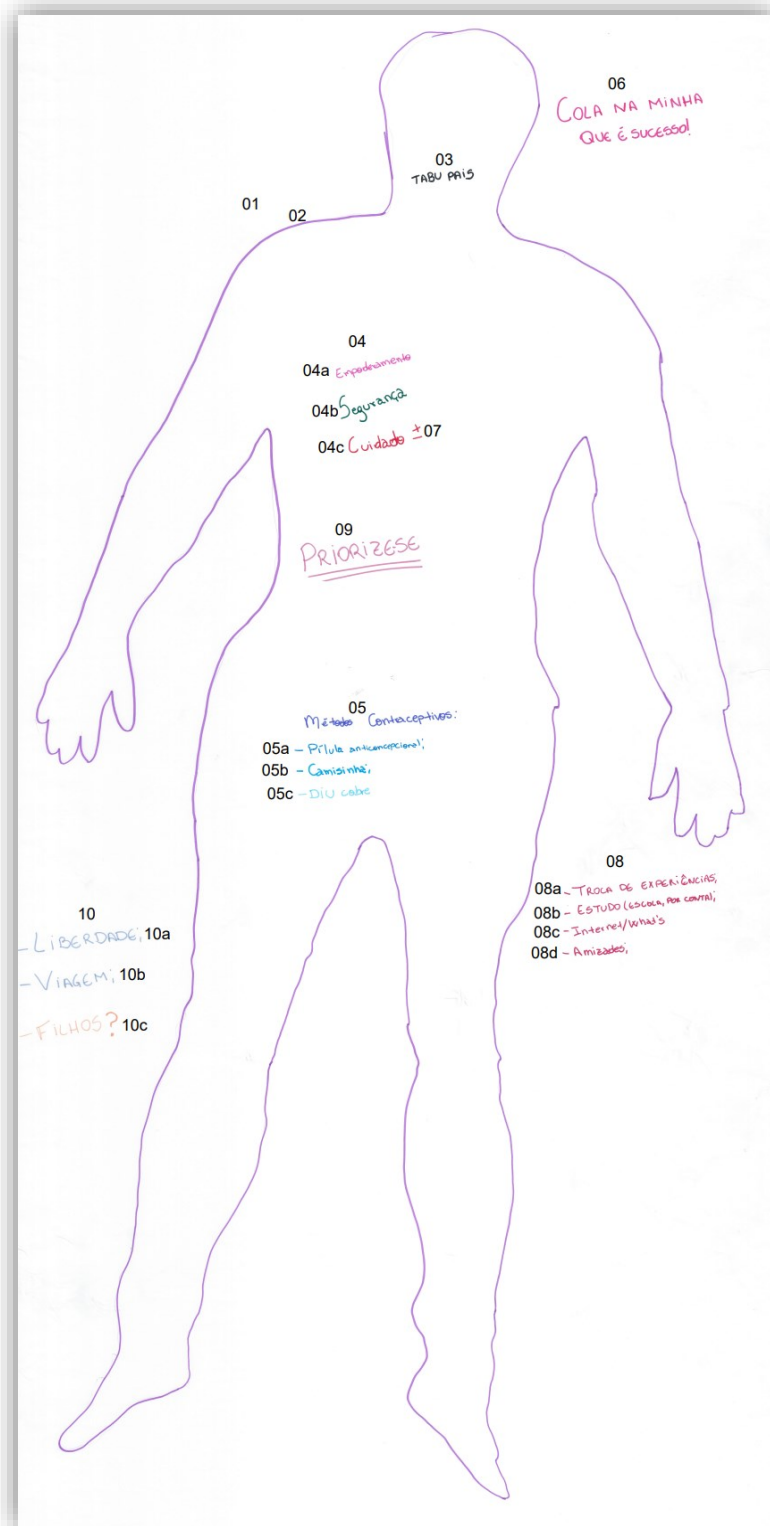 06
COLA NA MINHA
QUE É SUCESSO!
03
TABU PAIS
01
02
04
04a Empoderamento
04b Segurança
04c Cuidado ± 07
09
PRIORIZESE
05
Métodos Contraceptivos:
05a – Pílula anticoncepcional;
05b – Camisinha;
05c – DIU cobre
08
08a – TROCA DE EXPERIÊNCIAS;
08b – ESTUDO (ESCOLA, POR CONTA);
08c – Internet/What's
08d – Amizades;
10
– LIBERDADE; 10a
– VIAGEM; 10b
– FILHOS? 10c